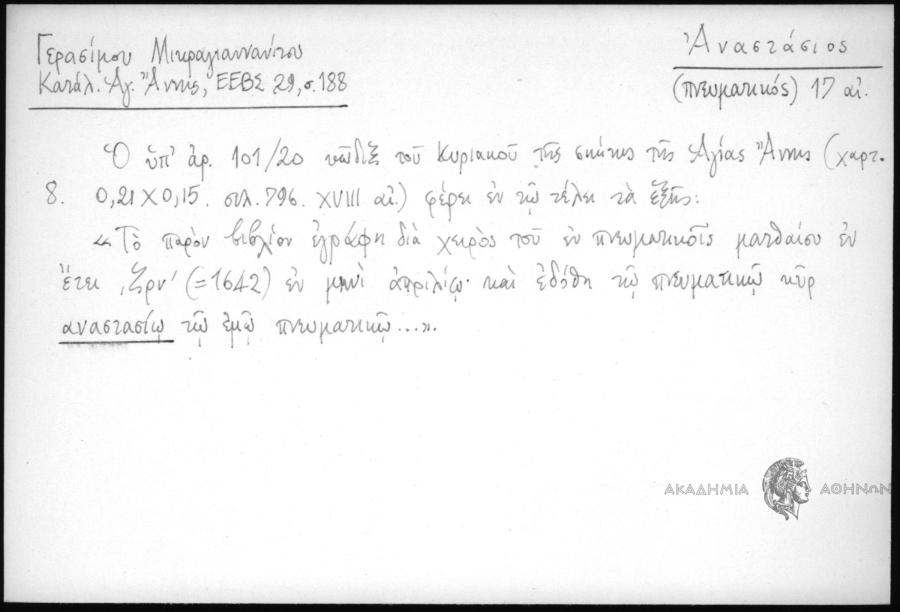 Γερασίμου Μικραγιαννανίτου
Κατάλ. Ἁγ. Ἄννης, ΕΕΒΣ 29, σ. 188
Ἀναστάσιος
(πνευματικός) 17 αἰ.
Ὁ ὑπ' ἀρ. 101/20 κῶδιξ τοῦ Κυριακοῦ τῆς σκήτης τῆς Ἁγίας Ἄννης (χαρτ.
8. 0,21 × 0,15. σελ. 796. XVIII αἰ.) φέρει ἐν τῷ τέλει τὰ ἑξῆς:
«Τὸ παρὸν βιβλίον ἐγράφη διὰ χειρὸς τοῦ ἐν πνευματικοῖς ματθαίου ἐν
ἔτει ͵ζρν' (=1642) ἐν μηνὶ ἀπριλίῳ· καὶ ἐδόθη τῷ πνευματικῷ κὺρ
αναστασίῳ τῷ ἐμῷ πνευματικῷ...».
ΑΚΑΔΗΜΙΑ ΑΘΗΝΩΝ